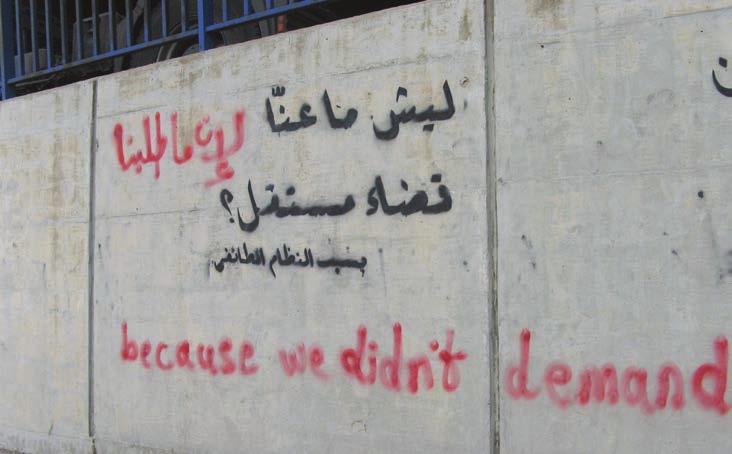 ليش ما عنّا
لإن ما طلبنا
قضاء مستقل؟
بسبب النظام الطائفي
because we didn't demand